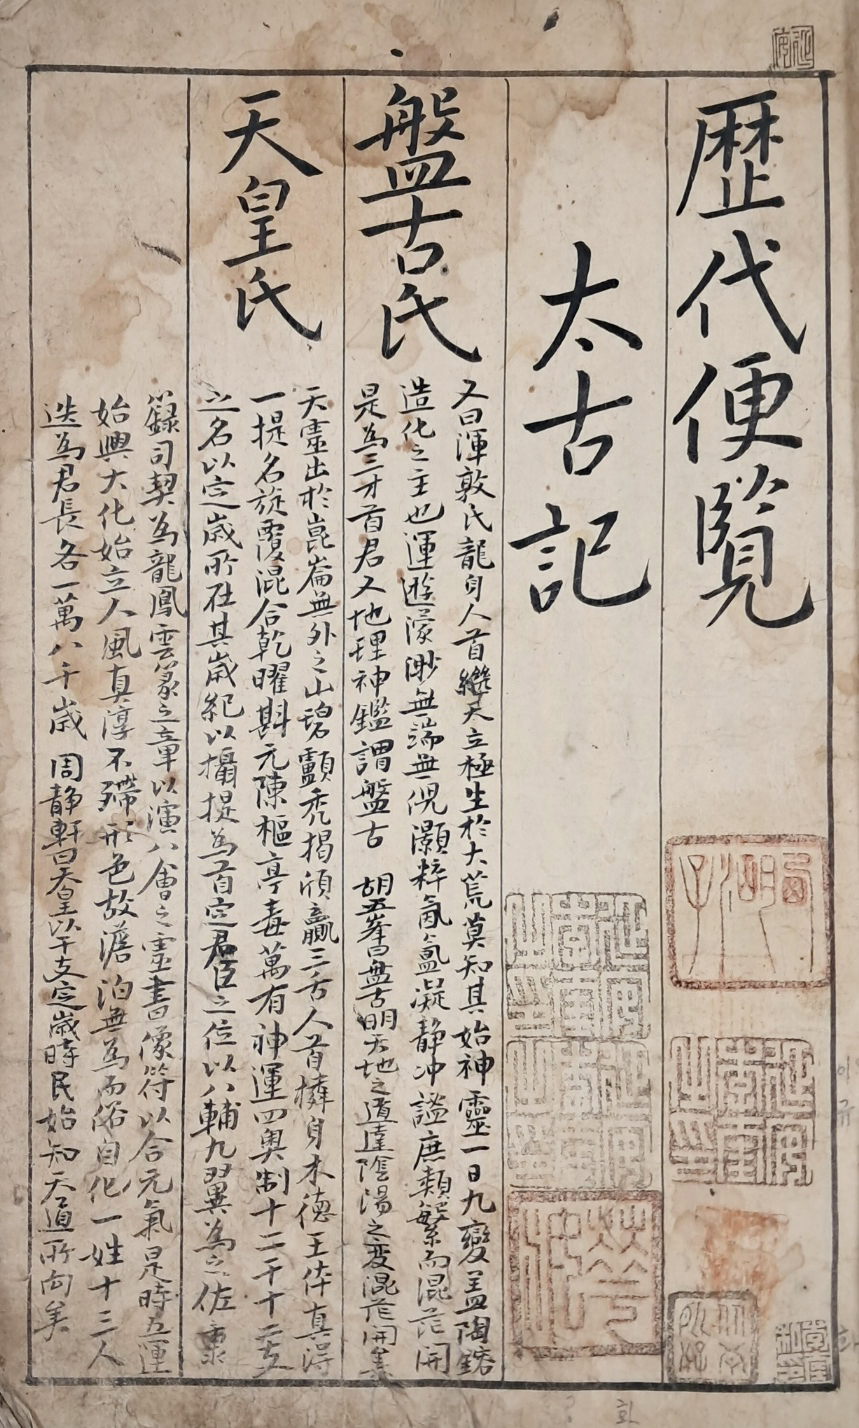 歷代便覧
太古記
盤古氏
又曰渾敦氏龍身人首繼天立極生於大荒莫知其始神靈一日九變盖陶鎔
造化之主也運遊濛渺無端無倪灝粹氤氳凝静冲謐庶類繁而混茫開
是為三才首君又地理神鑑謂盤古 胡五峯曰盤古明天地之道達陰陽之变混茫開矣
天皇氏
天靈出於崑崙無外之山碧顱禿揭頎贏三舌人首身木德王体真淂
一提名旋覆混合乾曜斟元陳樞亭毒萬有神運四奧制十二干十二支
之名以定歲所在其歲紀以攝提為首定君臣之位以八輔九翼為之佐禀
籙司契為龍鳳雲篆之章以演八會之靈書像符以合元氣是時五運
始興大化始立人風真淳不滯形色故澹泊無為而俗自化一姓十三人
迭為君長各一萬八千歲 周静軒曰天皇以干支定歲時民始知天道所向矣